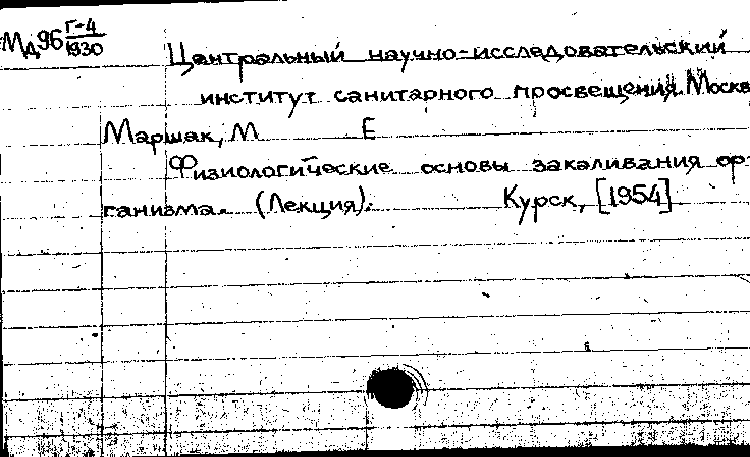 Мд96 Г-4/1930
Центральный научно-исследовательский
институт санитарного просвещения. Москва
Маршак, М Е
Физиологические основы закаливания ор-
ганизма. (Лекция). Курск, [1954]